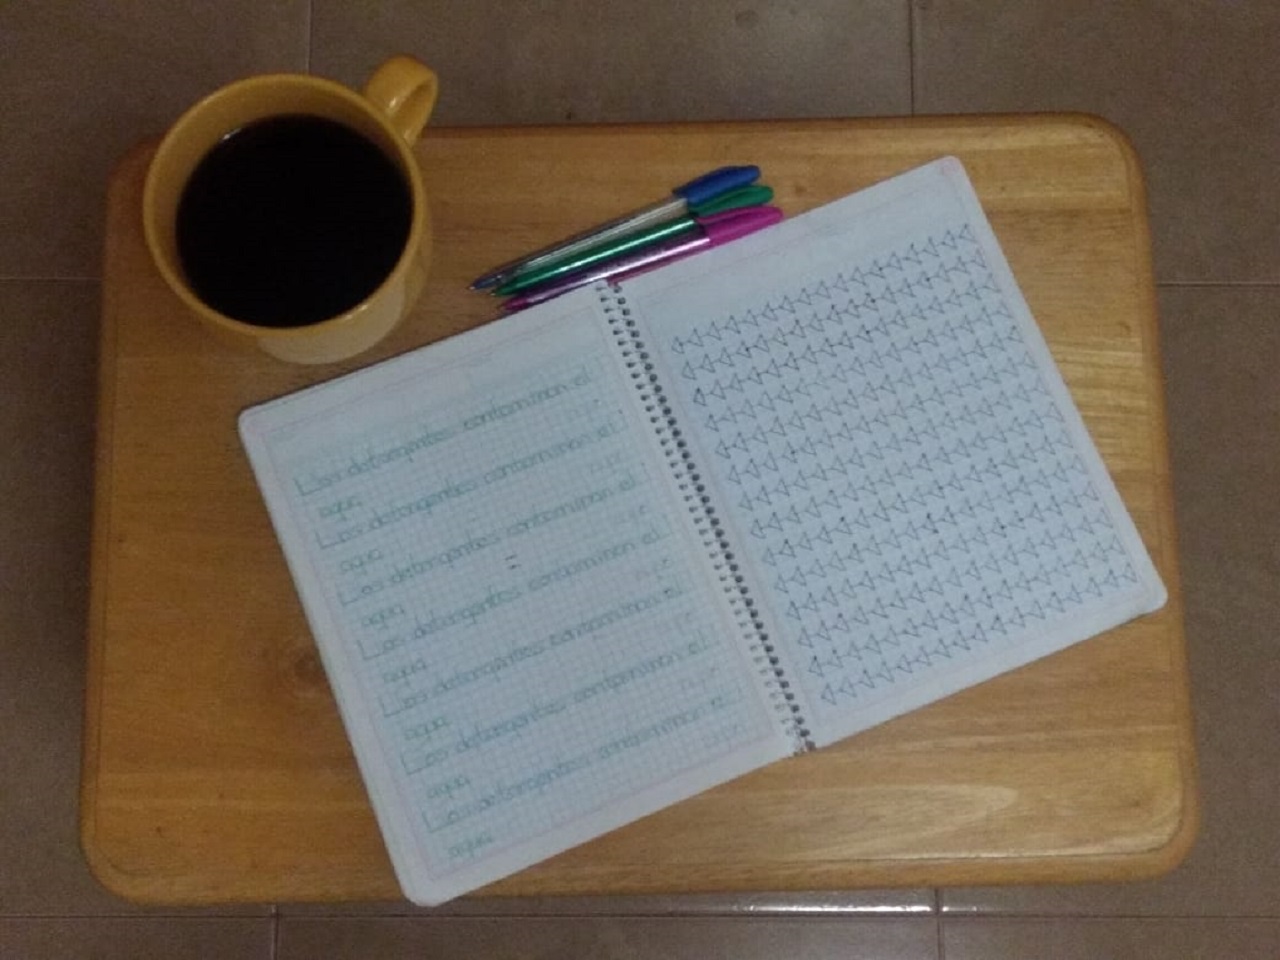 Los detergentes contaminan el
agua
Los detergentes contaminan el
agua
Los detergentes contaminan el
agua
Los detergentes contaminan el
agua
Los detergentes contaminan el
agua
Los detergentes contaminan el
agua
Los detergentes contaminan el
agua